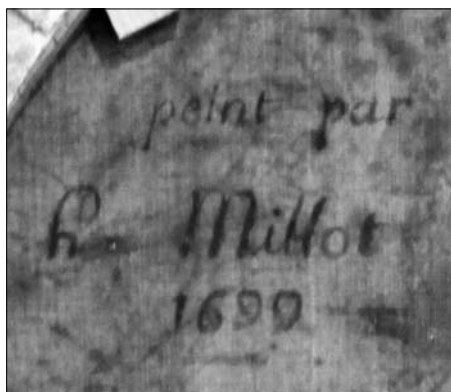 peint par
h. Millot
1699